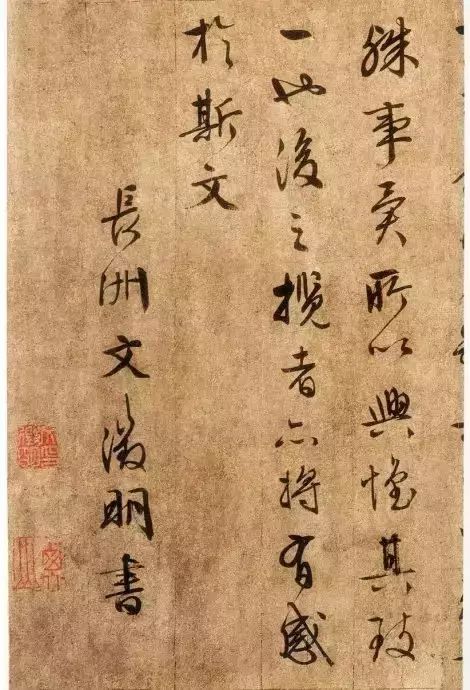 殊事異所以興懷其致
一也後之攬者亦將有感
於斯文
長洲文徵明書